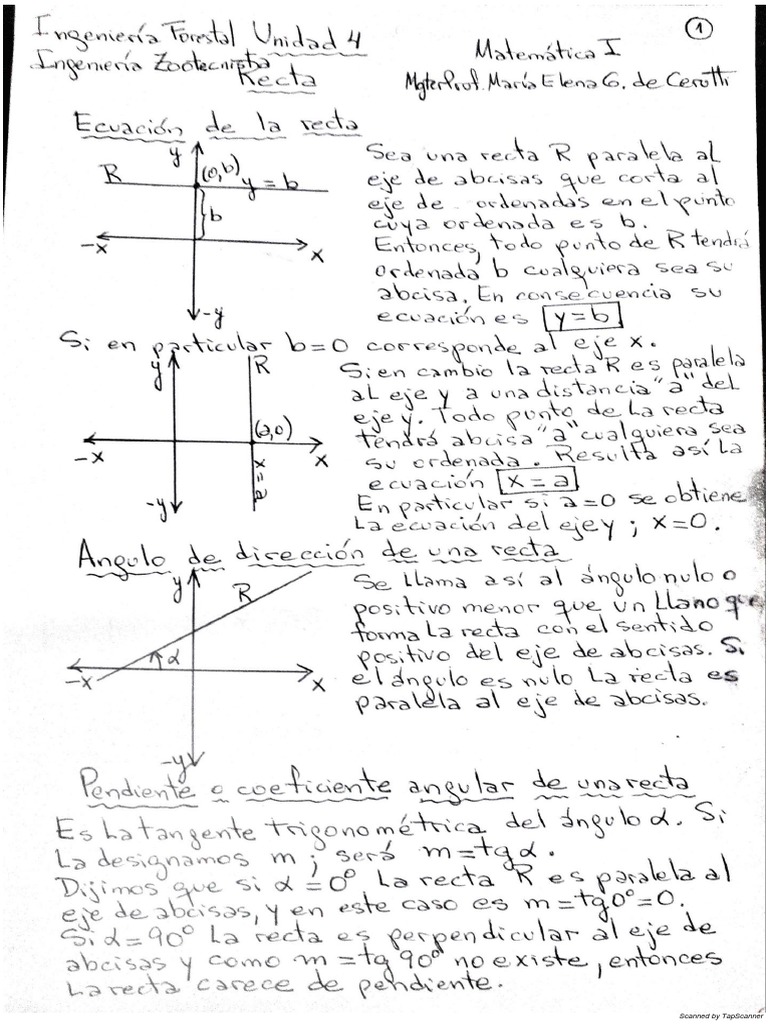 1
Ingeniería Forestal Unidad 4
Matemática I
Ingeniería Zootecnista
Recta
MgterProf. María Elena G. de Cerotti
Ecuación de la recta
y
R
(0,b)
y = b
b
-x
x
-y
Sea una recta R paralela al
eje de abcisas que corta al
eje de ordenadas en el punto
cuya ordenada es b.
Entonces, todo punto de R tendrá
ordenada b cualquiera sea su
abcisa. En consecuencia su
ecuación es y=b
Si en particular b=0 corresponde al eje x.
y
R
(a,0)
-x
x
x=a
-y
Si en cambio la recta R es paralela
al eje y a una distancia "a" del
eje y. Todo punto de la recta
tendrá abcisa "a" cualquiera sea
su ordenada. Resulta así la
ecuación x=a
En particular si a=0 se obtiene
la ecuación del eje y ; x=0.
Angulo de dirección de una recta
y
R
α
-x
x
-y
Se llama así al ángulo nulo o
positivo menor que un llano que
forma la recta con el sentido
positivo del eje de abcisas. Si
el ángulo es nulo la recta es
paralela al eje de abcisas.
Pendiente o coeficiente angular de una recta
Es la tangente trigonométrica del ángulo α. Si
la designamos m ; será m=tgα.
Dijimos que si α=0° la recta R es paralela al
eje de abcisas, y en este caso es m=tg0°=0.
Si α=90° la recta es perpendicular al eje de
abcisas y como m=tg 90° no existe, entonces
la recta carece de pendiente.
Scanned by TapScanner